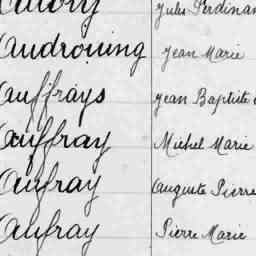 Jules Ferdinan
Audrouing Jean Marie
Auffrays Jean Baptiste
Auffray Michel Marie
Aufray Auguste Pierre
Aufray Pierre Marie